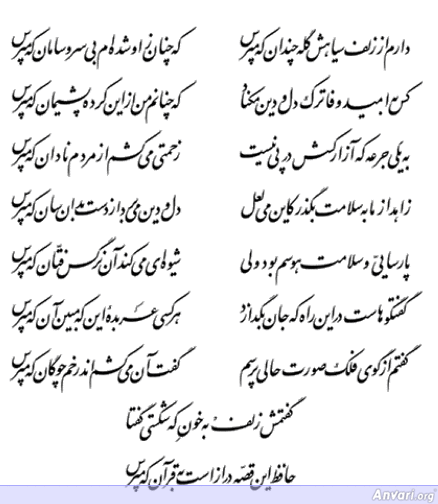 دارم از زلف سیاهش گله چندان که مپرس که چنان ز او شده‌ام بی سر و سامان که مپرس
کس به امید وفا ترک دل و دین مکناد که چنانم من از این کرده پشیمان که مپرس
به یکی جرعه که آزار کسش در پی نیست زحمتی می‌کشم از مردم نادان که مپرس
زاهد از ما به سلامت بگذر کاین می لعل دل و دین می‌برد از دست بدان سان که مپرس
پارسایی و سلامت هوسم بود ولی شیوه‌ای می‌کند آن نرگس فتّان که مپرس
گفتگوهاست در این راه که جان بگدازد هر کسی عربده‌ای این که مبین آن که مپرس
گفتم از گوی فلک صورت حالی پرسم گفت آن می‌کشم اندر خم چوگان که مپرس
گفتمش زلف به خون که شکستی گفتا
حافظ این قصّه دراز است به قرآن که مپرس
Anvari.org